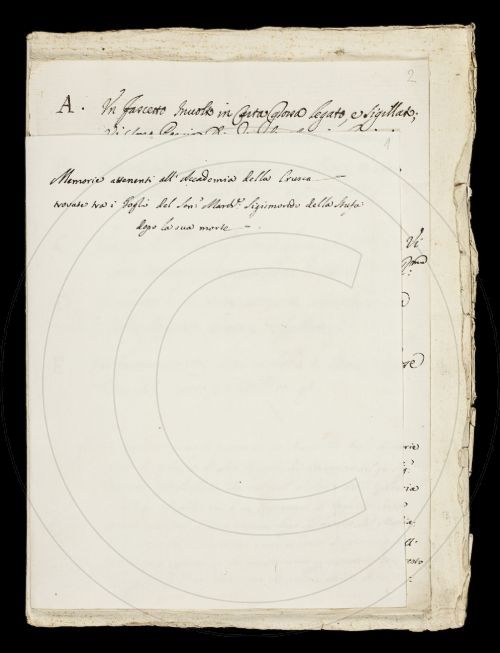 2
A. Un fascetto Involto in Carta Colorita legato, e Sigillato;
1
Memorie attenenti all'Accademia della Crusca
trovate tra i fogli del Sen.re March.e Sigismondo della Stufa
dopo la sua morte